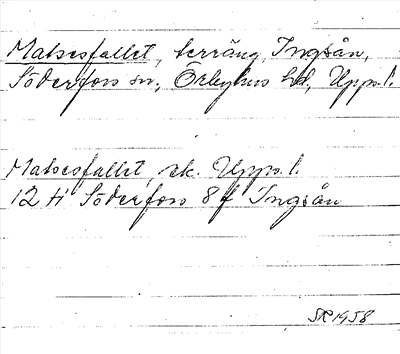 Matsesfallet, terräng, Ingsån,
Söderfors sn, Örbyhus hd, Upps. l.
Matsesfallet, ek. Upps. l.
12 H Söderfors 8 f Ingsån
SR 1958